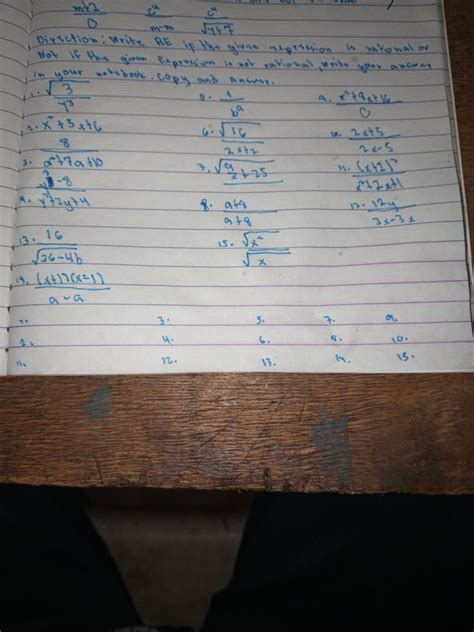 m+2 c⁴ c⁴
0 m-m √y+7
Direction: Write RE if the given expression is rational or
Not if the given expression is not rational, write your answer
in your notebook. Copy and Answer.
1. √3 5. 1 9. x²+8x+16
b⁹ 0
2. x²+3x+6 6. √16 10. 2x+5
8 2x+2 2x-5
3. a²+7a+10 7. √9 11. (x+2)²
-8 x+25 x²+2x+1
4. y²+2y+4 8. a+8 12. 12y
a+8 3x-3x
13. 16 15. √x²
√36-4b √x
14.
a-a
3. 5. 7. 9.
2. 4. 6. 8. 10.
11. 12. 13. 14. 15.